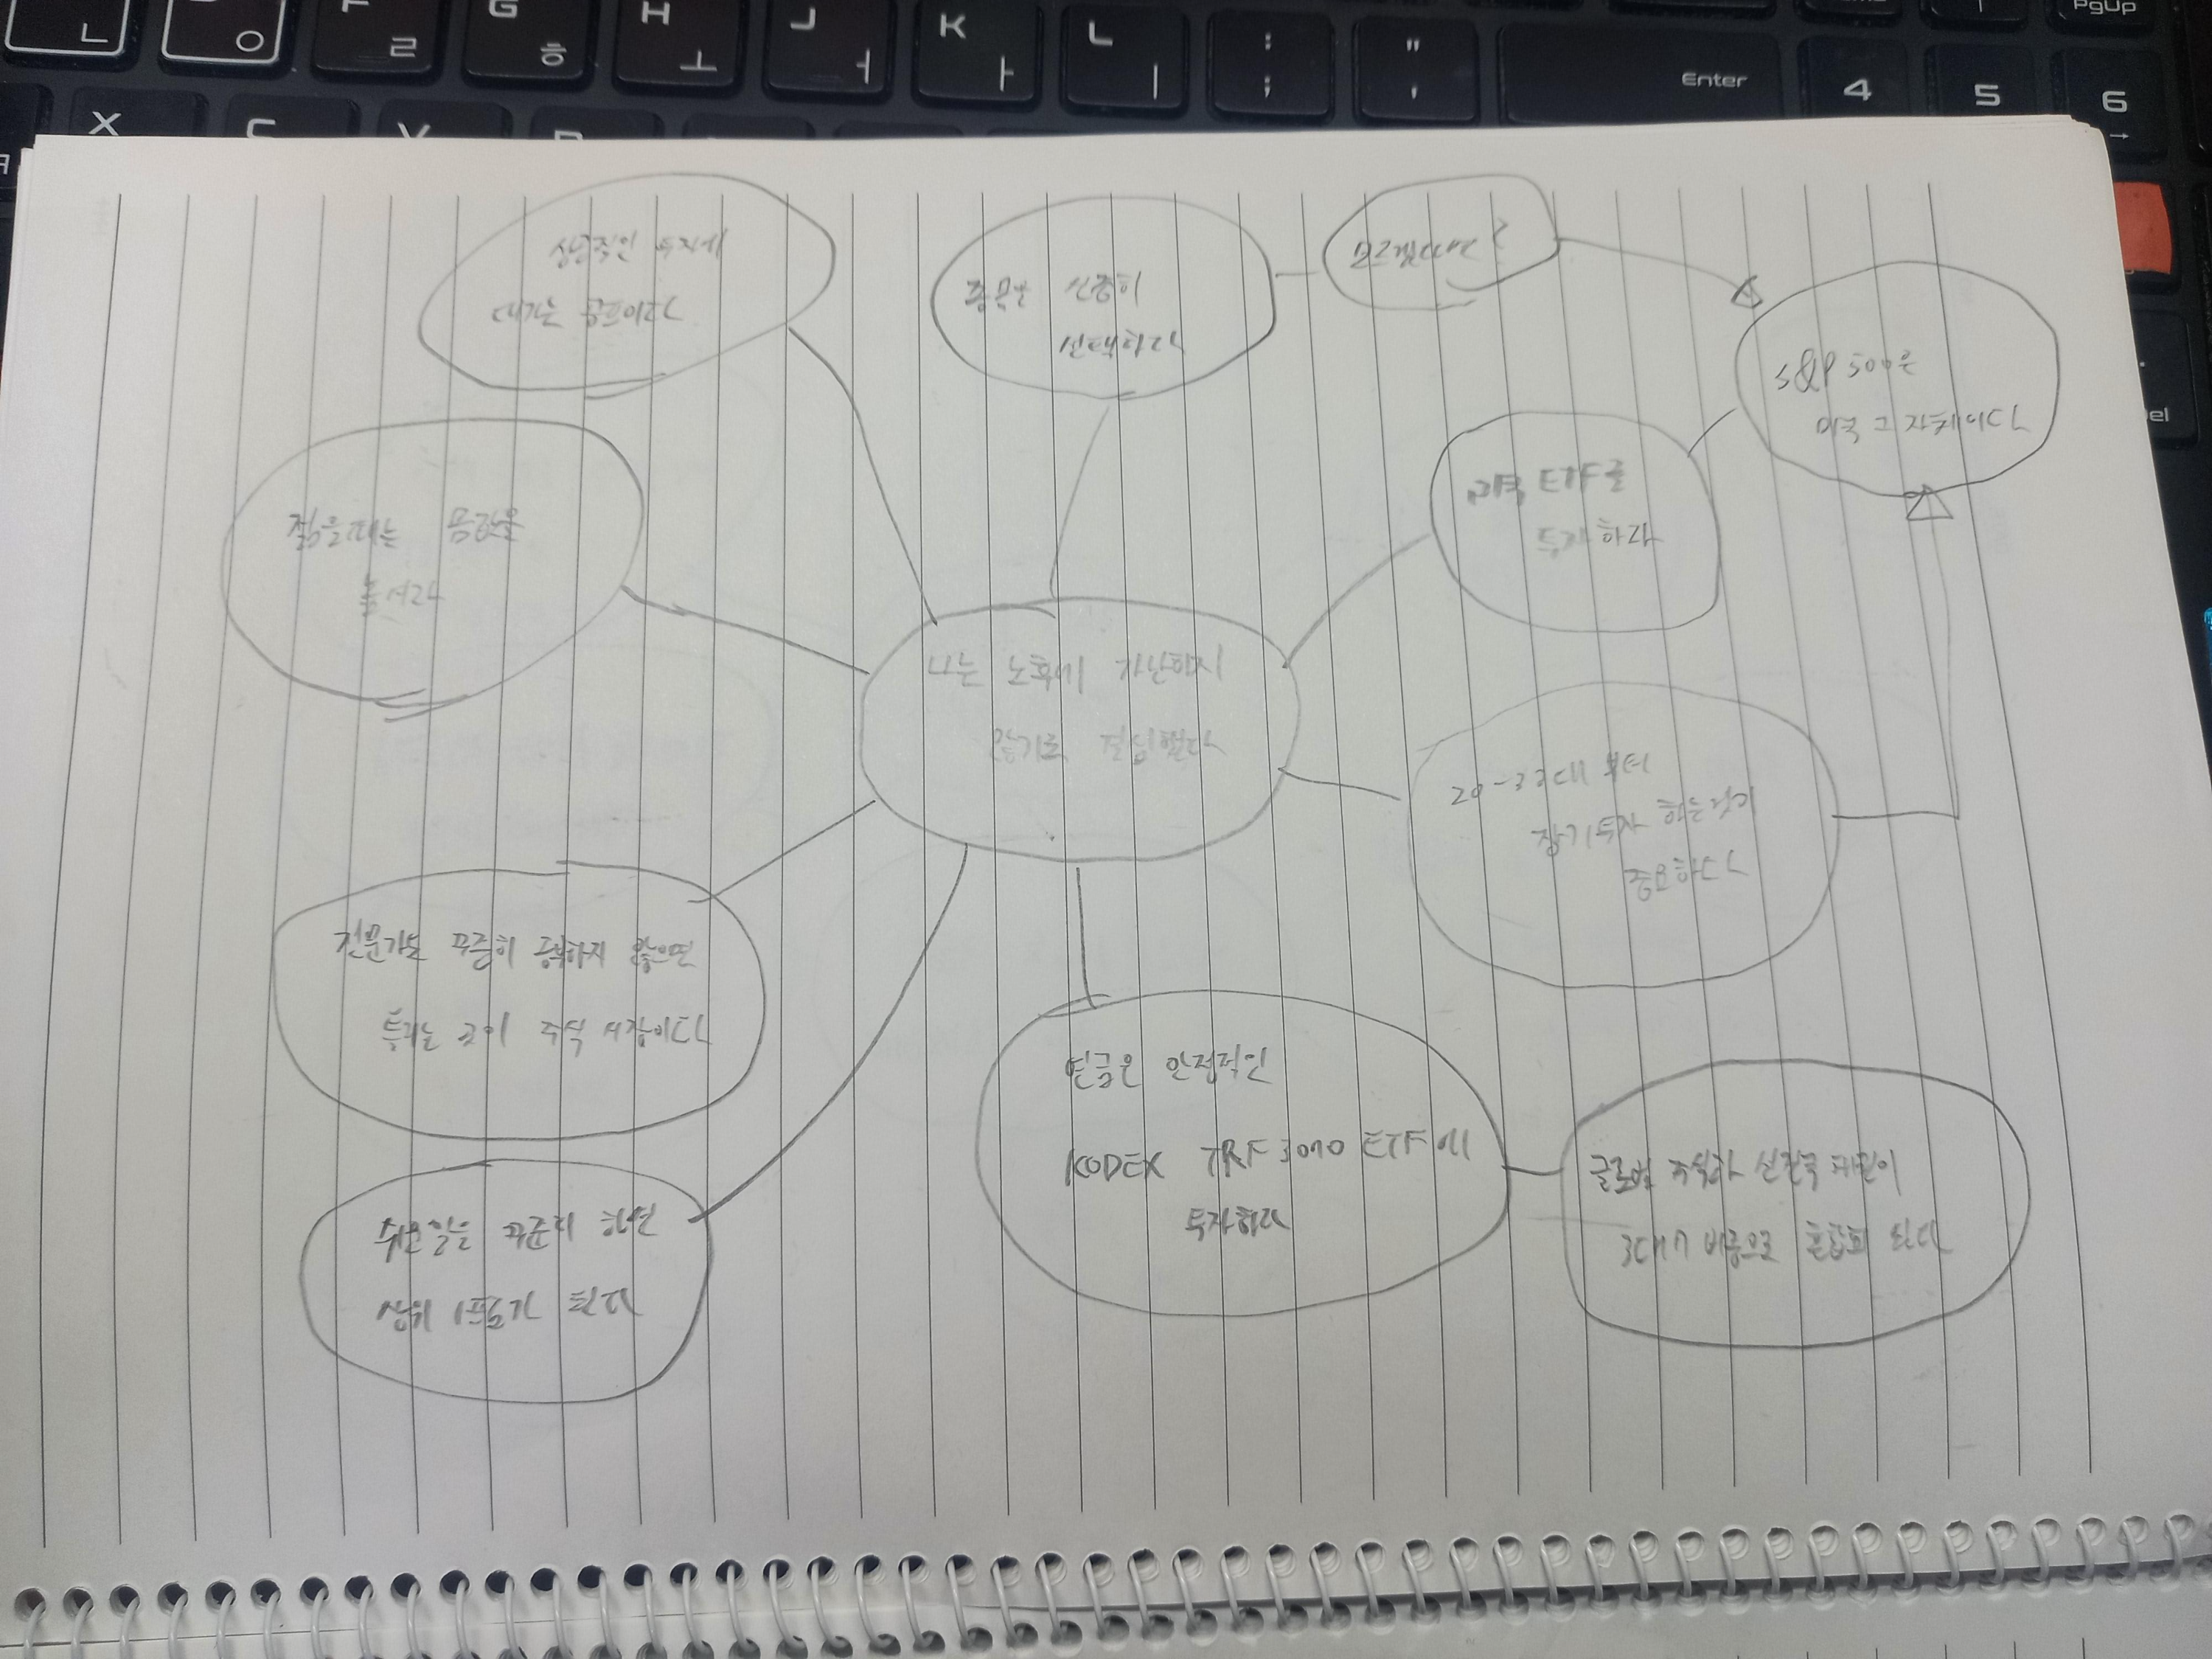 ㄴ
ㅇ
F
ㄹ
G
ㅎ
H
ㅗ
J
ㅓ
K
ㅏ
L
ㅣ
:
;
"
'
Enter
4
5
6
→
PgUp
X
C
V
B
상식적인 투자에
대가는 공포이다
종목은 신중히
선택하라
모르겠다면?
S&P 500은
미국 그 자체이다
미국 ETF를
투자하라
젊을때는 몸값을
높여라
나는 노후에 가난하지
않기로 결심했다
20-33대 부터
장기투자 하는것이
중요하다
전문가도 꾸준히 공부하지 않으면
틀리는 곳이 주식 시장이다
연금은 안정적인
KODEX TRF 3070 ETF에
투자하라
글로벌 주식과 선진국 채권이
3대7 비중으로 혼합되 있다
쉬운일을 꾸준히 하면
상위 1프로가 된다